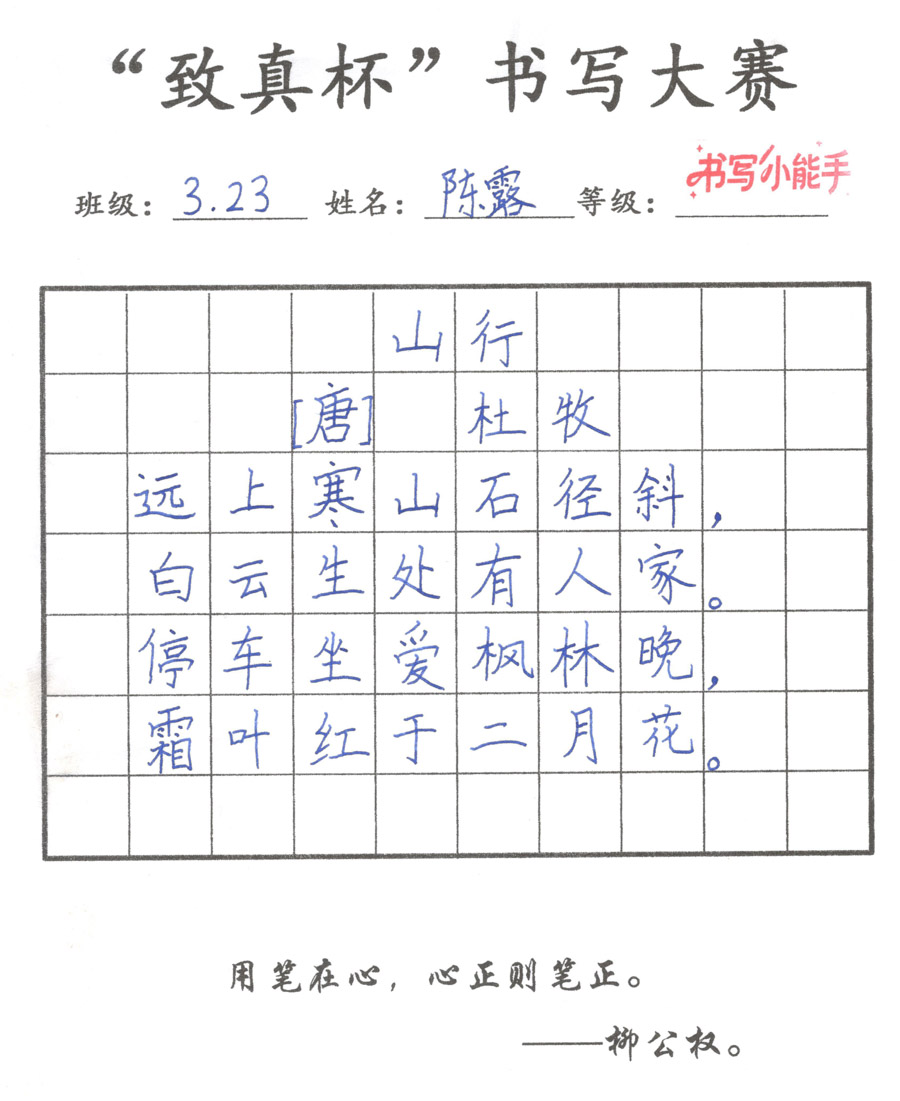 “致真杯”书写大赛
书写小能手
班级：3.23 姓名：陈露 等级：
山行
[唐] 杜牧
远上寒山石径斜，
白云生处有人家。
停车坐爱枫林晚，
霜叶红于二月花。
用笔在心，心正则笔正。
——柳公权。